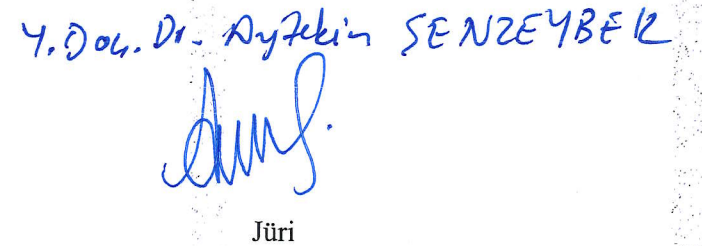 Y. Doç. Dr. Aytekin SENZEYBEK
Jüri